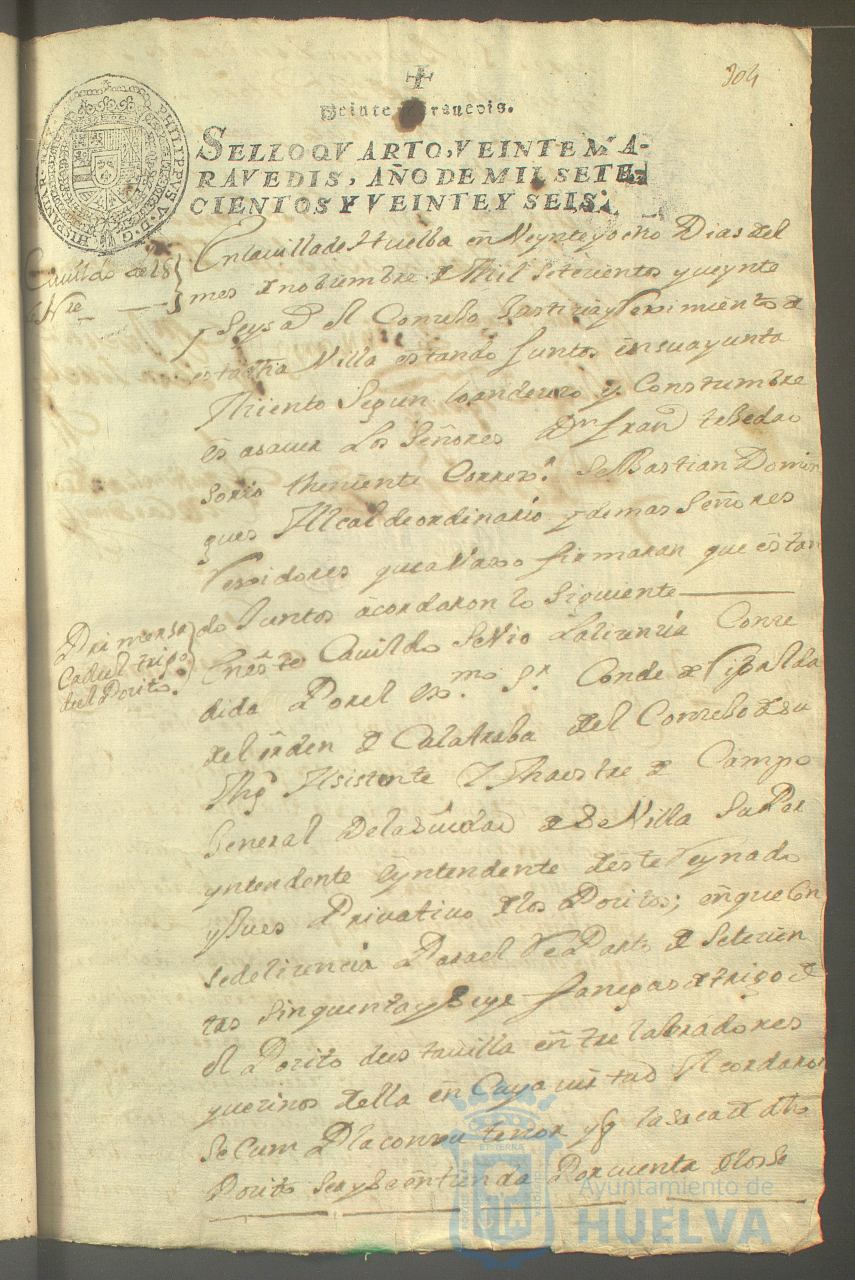 304
Veinte maravedis.
SELLO QVARTO, VEINTE MA-
RAVEDIS, AÑO DE MIL SETE-
CIENTOS Y VEINTE Y SEIS.
PHILIPPVS V D G HISPANIAR REX
Cauildo de 28
de Nre
En la uilla de Huelba en Veynte y ocho Dias del
mes de nobiembre de Mil seteçientos y ueynte
y Seys as el Conçejo Justiçia y Reximiento de
esta dha Villa estando Juntos en su ayunta
Miento Segun lo an de uso y Costumbre
es a sauer Los Señores Dn Franco
sorio theniente Corregor Sebastian Domin
gues Alcalde ordinario y demas Señores
Rexidores que auaxo firmaran que estan
do Juntos acordaron lo siguiente
Primera
Saca del trigo
del Posito.
En este Cauildo se Vio La liçençia Conse
dida Por el exmo Sr Conde de Ripalda
del orden de Calatraba del Consejo de su
Mgd Asistente y Maestre de Campo
General de la Ciudad de SeVilla SuPer
yntendente e yntendente deste Reynado
y Jues Priuatiuo de los Positos; en que Con
sede liçençia Para el RePartto de seteçien
tas sinquenta y seys fanegas de trigo de
el Posito desta uilla entre labradores
y ueçinos della en Cuya uirtud Acordaron
Se Cumpla con su tenor y q la saca de dho
Posito sea y se entienda Por quenta de los Se
Ayuntamiento de
HUELVA